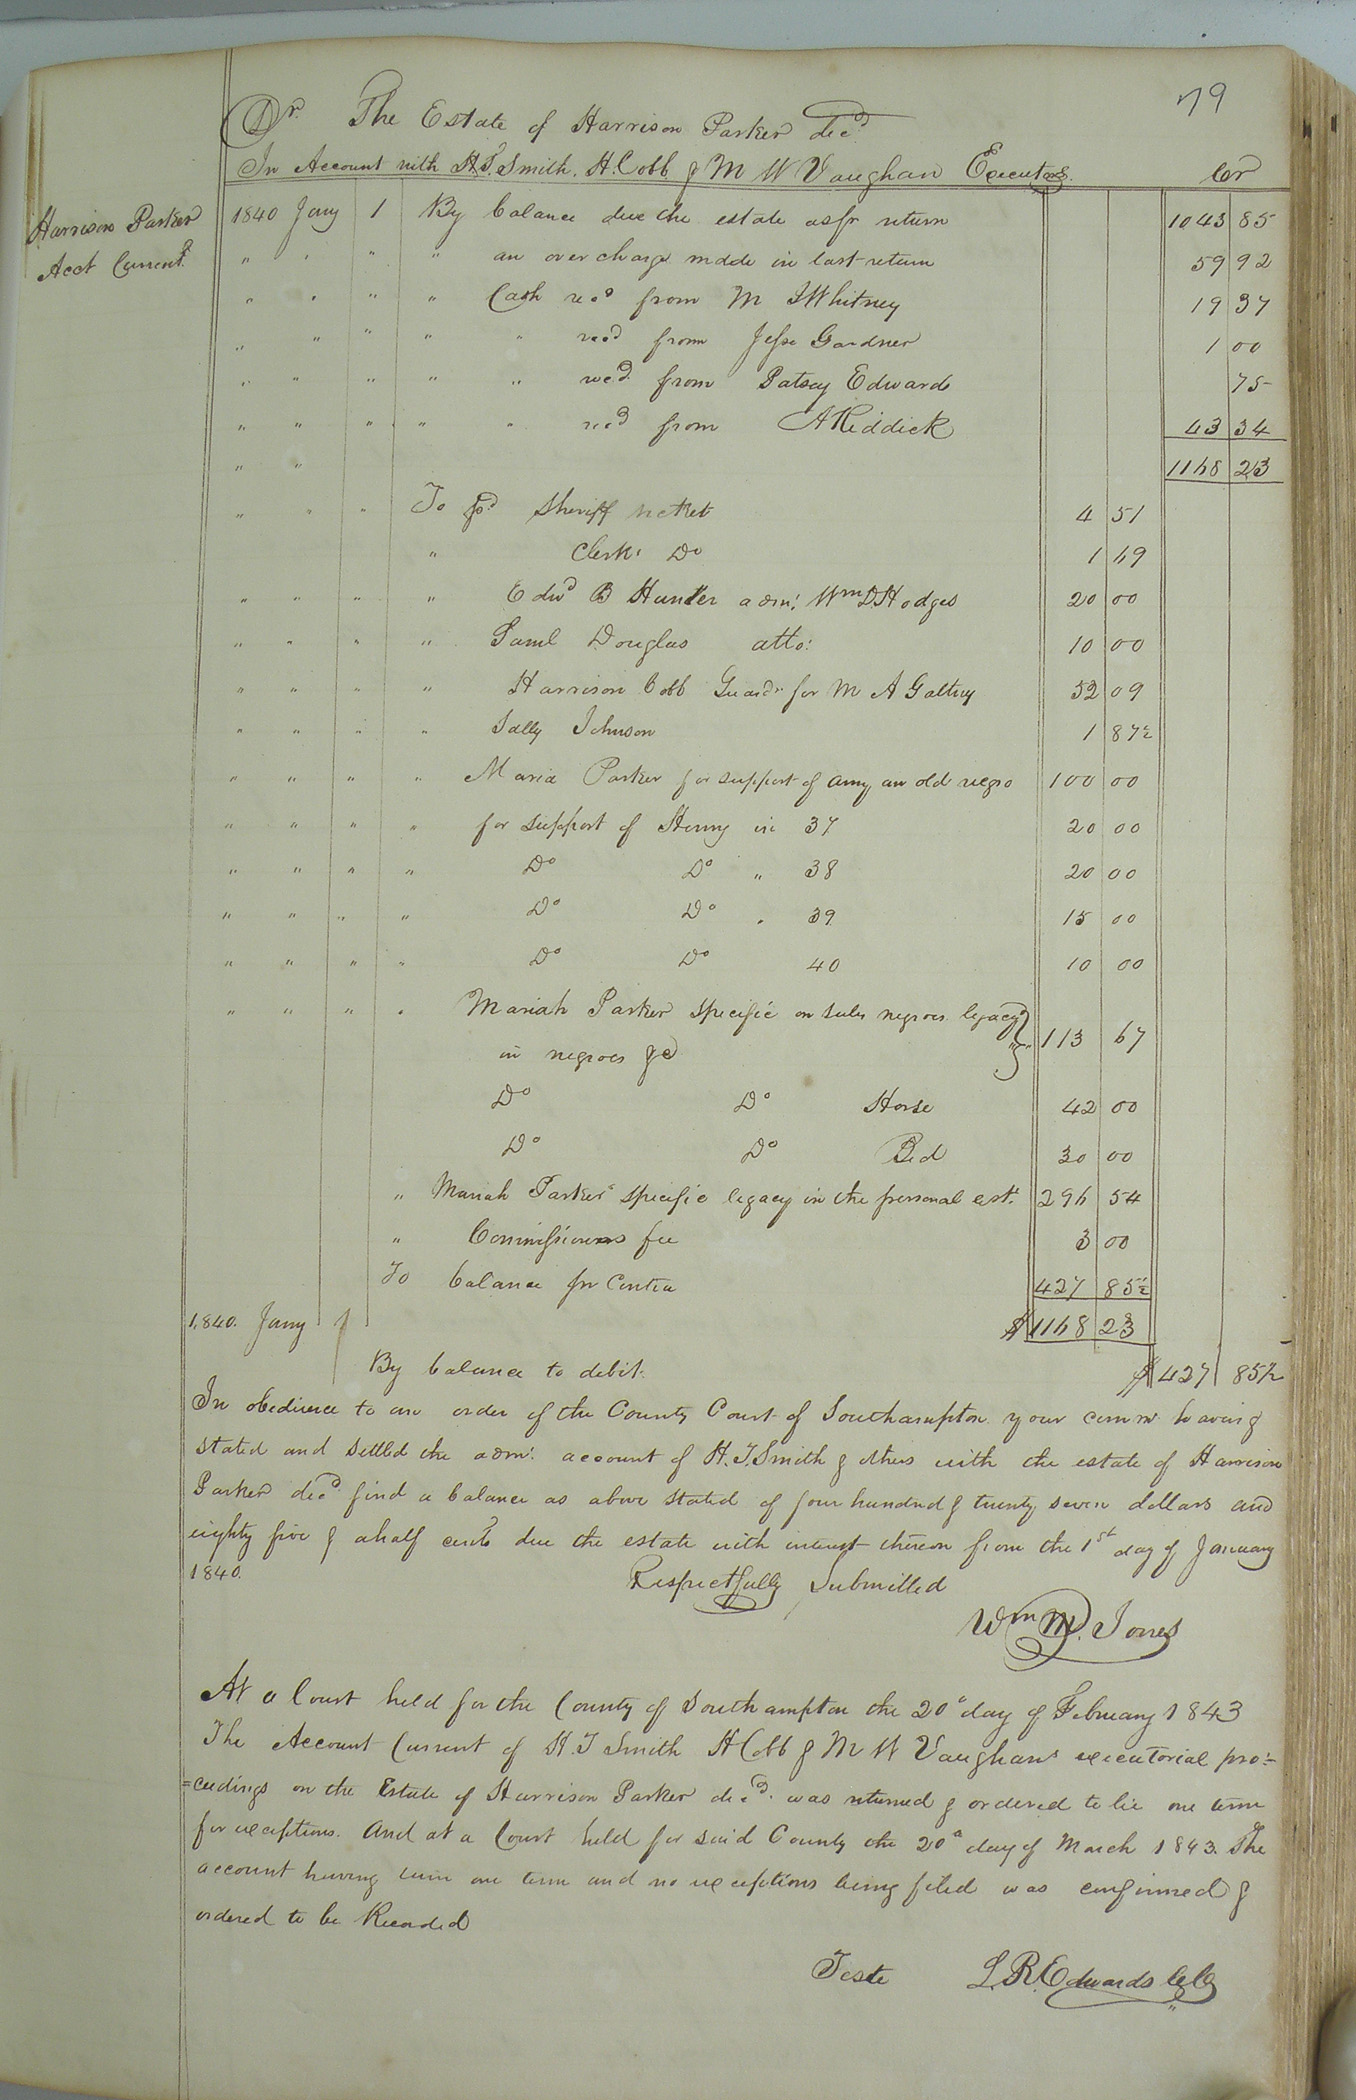 79
Dr. The Estate of Harrison Parker decd
In Account with H.T. Smith, H. Cobb & M W Vaughan Executors. Cr
Harrison Parker
Acct Current
1840 Jany 1 By balance due the estate as pr return 1043 85
" " " " an over charge made in last return 59 92
" " " " Cash recd from M J Whitney 19 37
" " " " " recd from Jesse Gardner 1 00
" " " " " recd from Patsey Edwards 75
" " " " " recd from A Riddick 43 34
" " 1168 23
" " " To pd Sheriff ticket 4 51
" Clerks Do 1 69
" " " " Edwd B Hunter adm: Wm D. Hodges 20 00
" " " " Saml Douglas atto: 10 00
" " " " Harrison Cobb Guardn for M A Gattny 52 09
" " " " Sally Johnson 1 87½
" " " " Maria Parker for support of Amy an old negro 100 00
" " " " for support of Henny in 37 20 00
" " " " Do Do " 38 20 00
" " " " Do Do " 39 15 00
" " " " Do Do 40 10 00
" " " " Mariah Parker specific on sales negroes legacy
in negroes &c 113 67
Do Do Horse 42 00
Do Do Bed 30 00
" Mariah Parkers specific legacy in the personal est. 296 54
" Commissioners fee 3 00
To balance pr Contra 427 85½
1840. Jany 1 $1168 23
By balance to debit. $427 85½
In obedience to an order of the County Court of Southampton your commr having
stated and settled the adm: account of H.T. Smith & others with the estate of Harrison
Parker decd find a balance as above stated of four hundred & twenty seven dollars and
eighty five & a half cents due the estate with interest thereon from the 1st day of January
1840.
Respectfully Submitted
Wm M. Jones
At a Court held for the County of Southampton the 20th day of February 1843
The Account Current of H. T Smith H Cobb & M W Vaughans executorial pro:=
=ceedings on the Estate of Harrison Parker decd. was returned & ordered to lie one term
for exceptions. And at a Court held for said County the 20th day of March 1843. The
account having lain one term and no exceptions being filed was confirmed &
ordered to be Recorded
Teste L. R. Edwards Clk